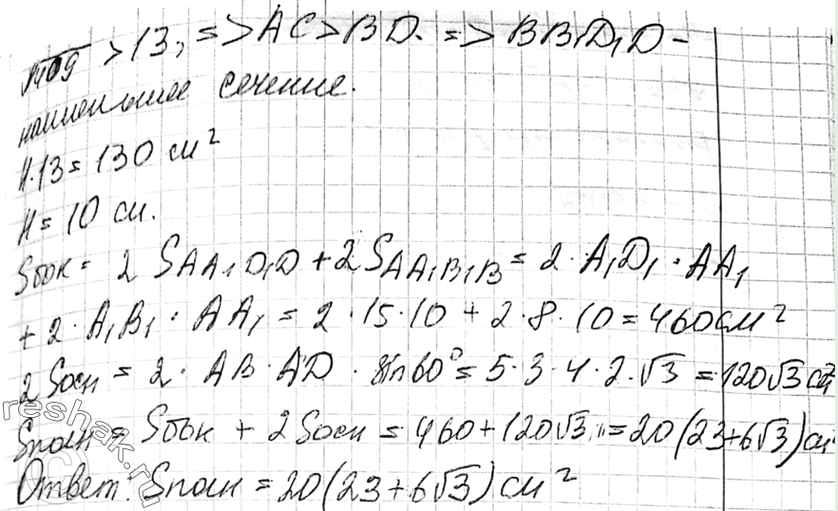 √409 > 13, => AC > BD. => BB₁D₁D -
наименьшее сечение.
H·13 = 130 см²
H = 10 см.
Sбок = 2 SAA₁D₁D + 2 SAA₁B₁B = 2 · A₁D₁ · AA₁
+ 2 · A₁B₁ · AA₁ = 2 · 15 · 10 + 2 · 8 · 10 = 460 см²
2 Sосн = 2 · AB · AD · sin 60° = 5 · 3 · 4 · 2 · √3 = 120√3 см²
Sполн = Sбок + 2 Sосн = 460 + 120√3 = 20(23 + 6√3) см²
Ответ: Sполн = 20(23 + 6√3) см²
reshak.ru